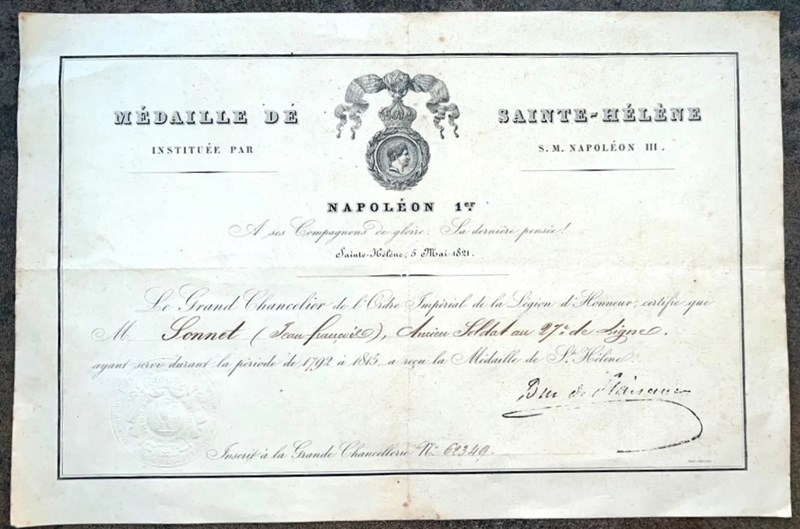 MÉDAILLE DE SAINTE-HÉLÈNE
INSTITUÉE PAR S. M. NAPOLÉON III.
NAPOLÉON 1er
A ses Compagnons de gloire. Sa dernière pensée!
Sainte-Hélène, 5 Mai 1821.
Le Grand Chancelier de l'Ordre Impérial de la Légion d'Honneur, certifie que
M Sonnet (Jean françois), Ancien Soldat au 27e de Ligne.
ayant servi durant la période de 1792 à 1815, a reçu la Médaille de Ste Hélène.
Duc de Plaisance
Inscrit à la Grande Chancellerie No 62349.